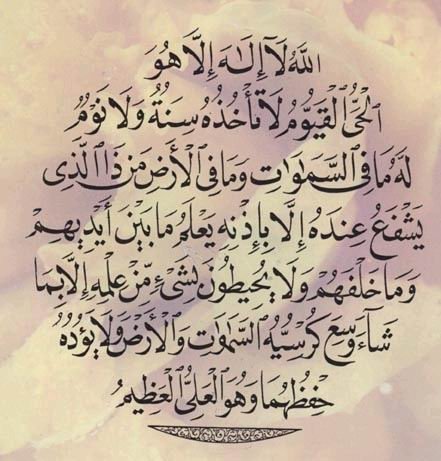 اللَّهُ لَآ إِلَٰهَ إِلَّا هُوَ
الْحَيُّ الْقَيُّومُ لَا تَأْخُذُهُ سِنَةٌ وَلَا نَوْمٌ
لَّهُ مَا فِي السَّمَاوَاتِ وَمَا فِي الْأَرْضِ مَن ذَا الَّذِي
يَشْفَعُ عِندَهُ إِلَّا بِإِذْنِهِ يَعْلَمُ مَا بَيْنَ أَيْدِيهِمْ
وَمَا خَلْفَهُمْ وَلَا يُحِيطُونَ بِشَيْءٍ مِّنْ عِلْمِهِ إِلَّا بِمَا
شَآءَ وَسِعَ كُرْسِيُّهُ السَّمَاوَاتِ وَالْأَرْضَ وَلَا يَؤُدُهُ
حِفْظُهُمَا وَهُوَ الْعَلِيُّ الْعَظِيمُ